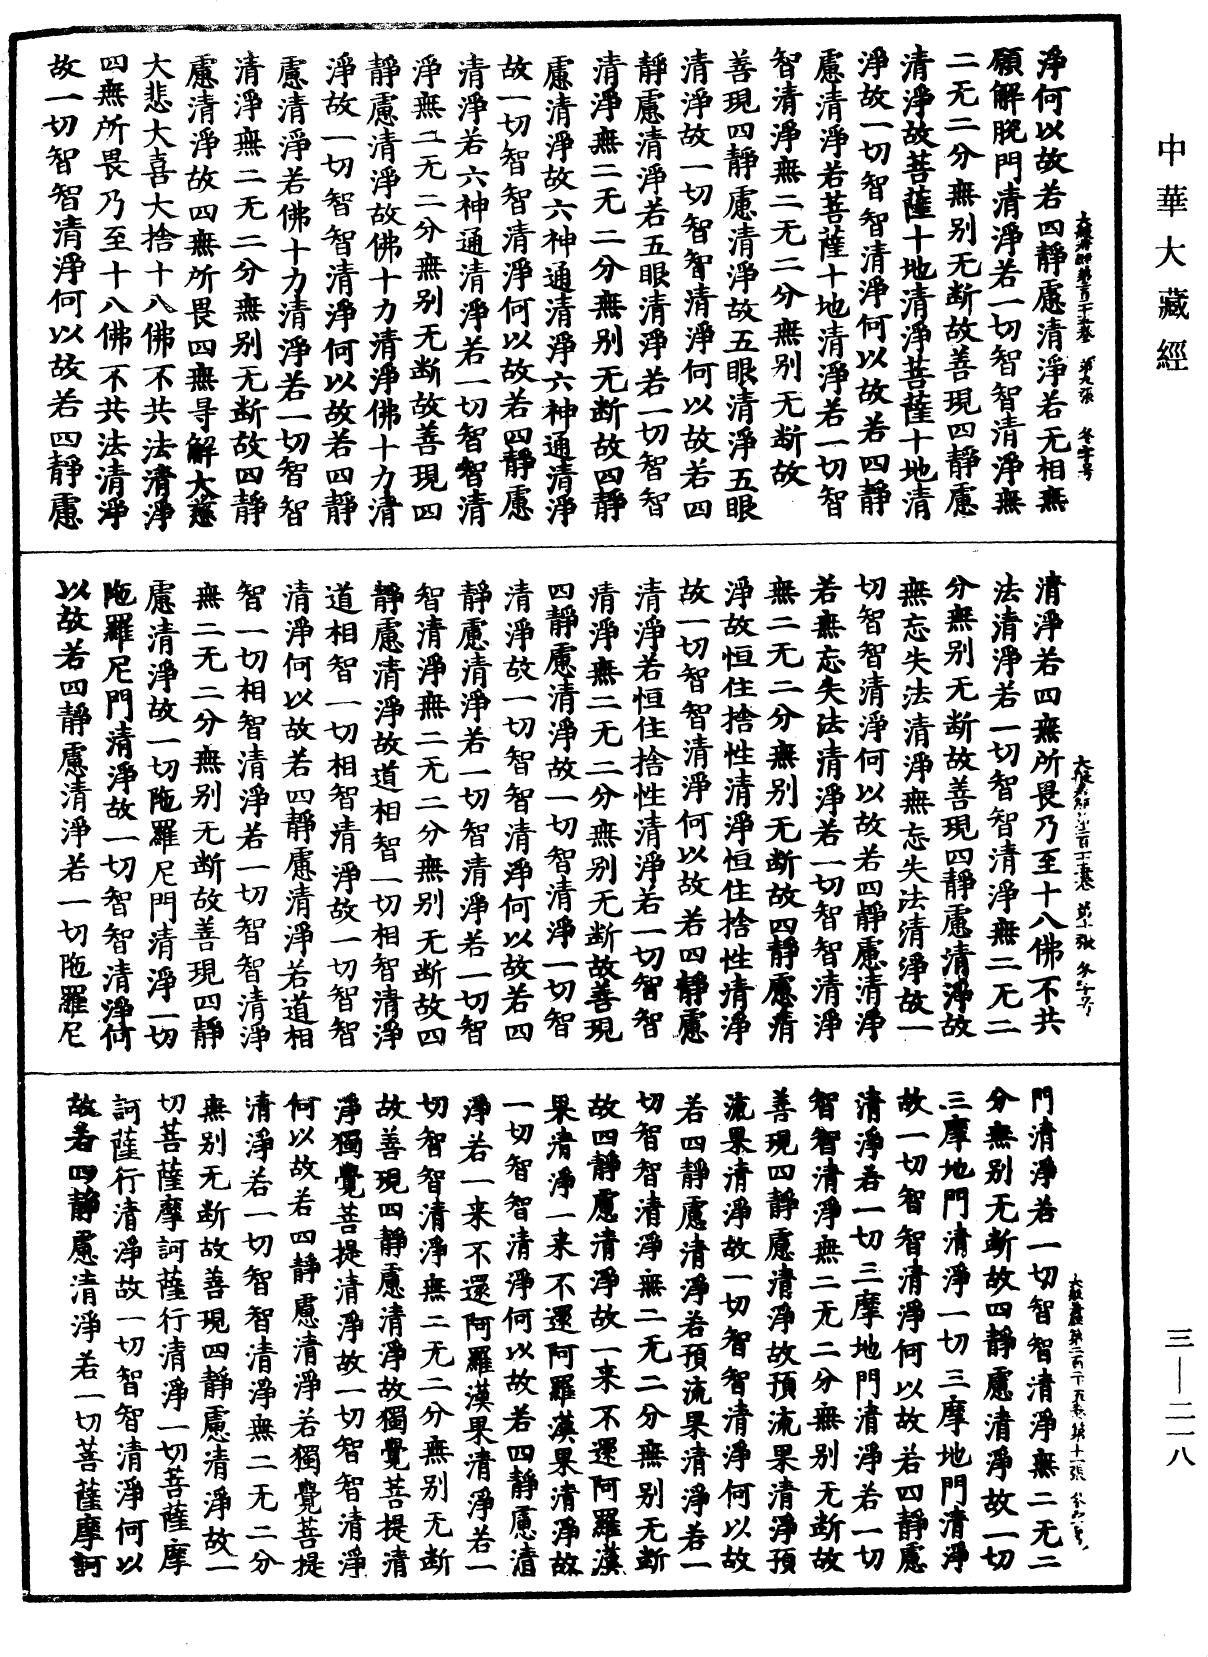 中華大藏經
淨何以故若四靜慮清淨若无相無
願解脫門清淨若一切智智清淨無
二无二分無別无斷故善現四靜慮
清淨故菩薩十地清淨菩薩十地清
淨故一切智智清淨何以故若四靜
慮清淨若菩薩十地清淨若一切智
智清淨無二无二分無別无斷故
善現四靜慮清淨故五眼清淨五眼
清淨故一切智智清淨何以故若四
靜慮清淨若五眼清淨若一切智智
清淨無二无二分無別无斷故四靜
慮清淨故六神通清淨六神通清淨
故一切智智清淨何以故若四靜慮
清淨若六神通清淨若一切智智清
淨無二无二分無別无斷故善現四
靜慮清淨故佛十力清淨佛十力清
淨故一切智智清淨何以故若四靜
慮清淨若佛十力清淨若一切智智
清淨無二无二分無別无斷故四靜
慮清淨故四無所畏四無㝵解大慈
大悲大喜大捨十八佛不共法清淨
四無所畏乃至十八佛不共法清淨
故一切智智清淨何以故若四靜慮
清淨若四無所畏乃至十八佛不共
法清淨若一切智智清淨無二无二
分無別无斷故善現四靜慮清淨故
無忘失法清淨無忘失法清淨故一
切智智清淨何以故若四靜慮清淨
若無忘失法清淨若一切智智清淨
無二无二分無別无斷故四靜慮清
淨故恒住捨性清淨恒住捨性清淨
故一切智智清淨何以故若四靜慮
清淨若恒住捨性清淨若一切智智
清淨無二无二分無別无斷故善現
四靜慮清淨故一切智清淨一切智
清淨故一切智智清淨何以故若四
靜慮清淨若一切智清淨若一切智
智清淨無二无二分無別无斷故四
靜慮清淨故道相智一切相智清淨
道相智一切相智清淨故一切智智
清淨何以故若四靜慮清淨若道相
智一切相智清淨若一切智智清淨
無二无二分無別无斷故善現四靜
慮清淨故一切陁羅尼門清淨一切
陁羅尼門清淨故一切智智清淨何
以故若四靜慮清淨若一切陁羅尼
門清淨若一切智智清淨無二无二
分無別无斷故四靜慮清淨故一切
三摩地門清淨一切三摩地門清淨
故一切智智清淨何以故若四靜慮
清淨若一切三摩地門清淨若一切
智智清淨無二无二分無別无斷故
善現四靜慮清淨故預流果清淨預
流果清淨故一切智智清淨何以故
若四靜慮清淨若預流果清淨若一
切智智清淨無二无二分無別无斷
故四靜慮清淨故一来不還阿羅漢
果清淨一来不還阿羅漢果清淨故
一切智智清淨何以故若四靜慮清
淨若一来不還阿羅漢果清淨若一
切智智清淨無二无二分無別无斷
故善現四靜慮清淨故獨覺菩提清
淨獨覺菩提清淨故一切智智清淨
何以故若四靜慮清淨若獨覺菩提
清淨若一切智智清淨無二无二分
無別无斷故善現四靜慮清淨故一
切菩薩摩訶薩行清淨一切菩薩摩
訶薩行清淨故一切智智清淨何以
故若四靜慮清淨若一切菩薩摩訶
三—二一八